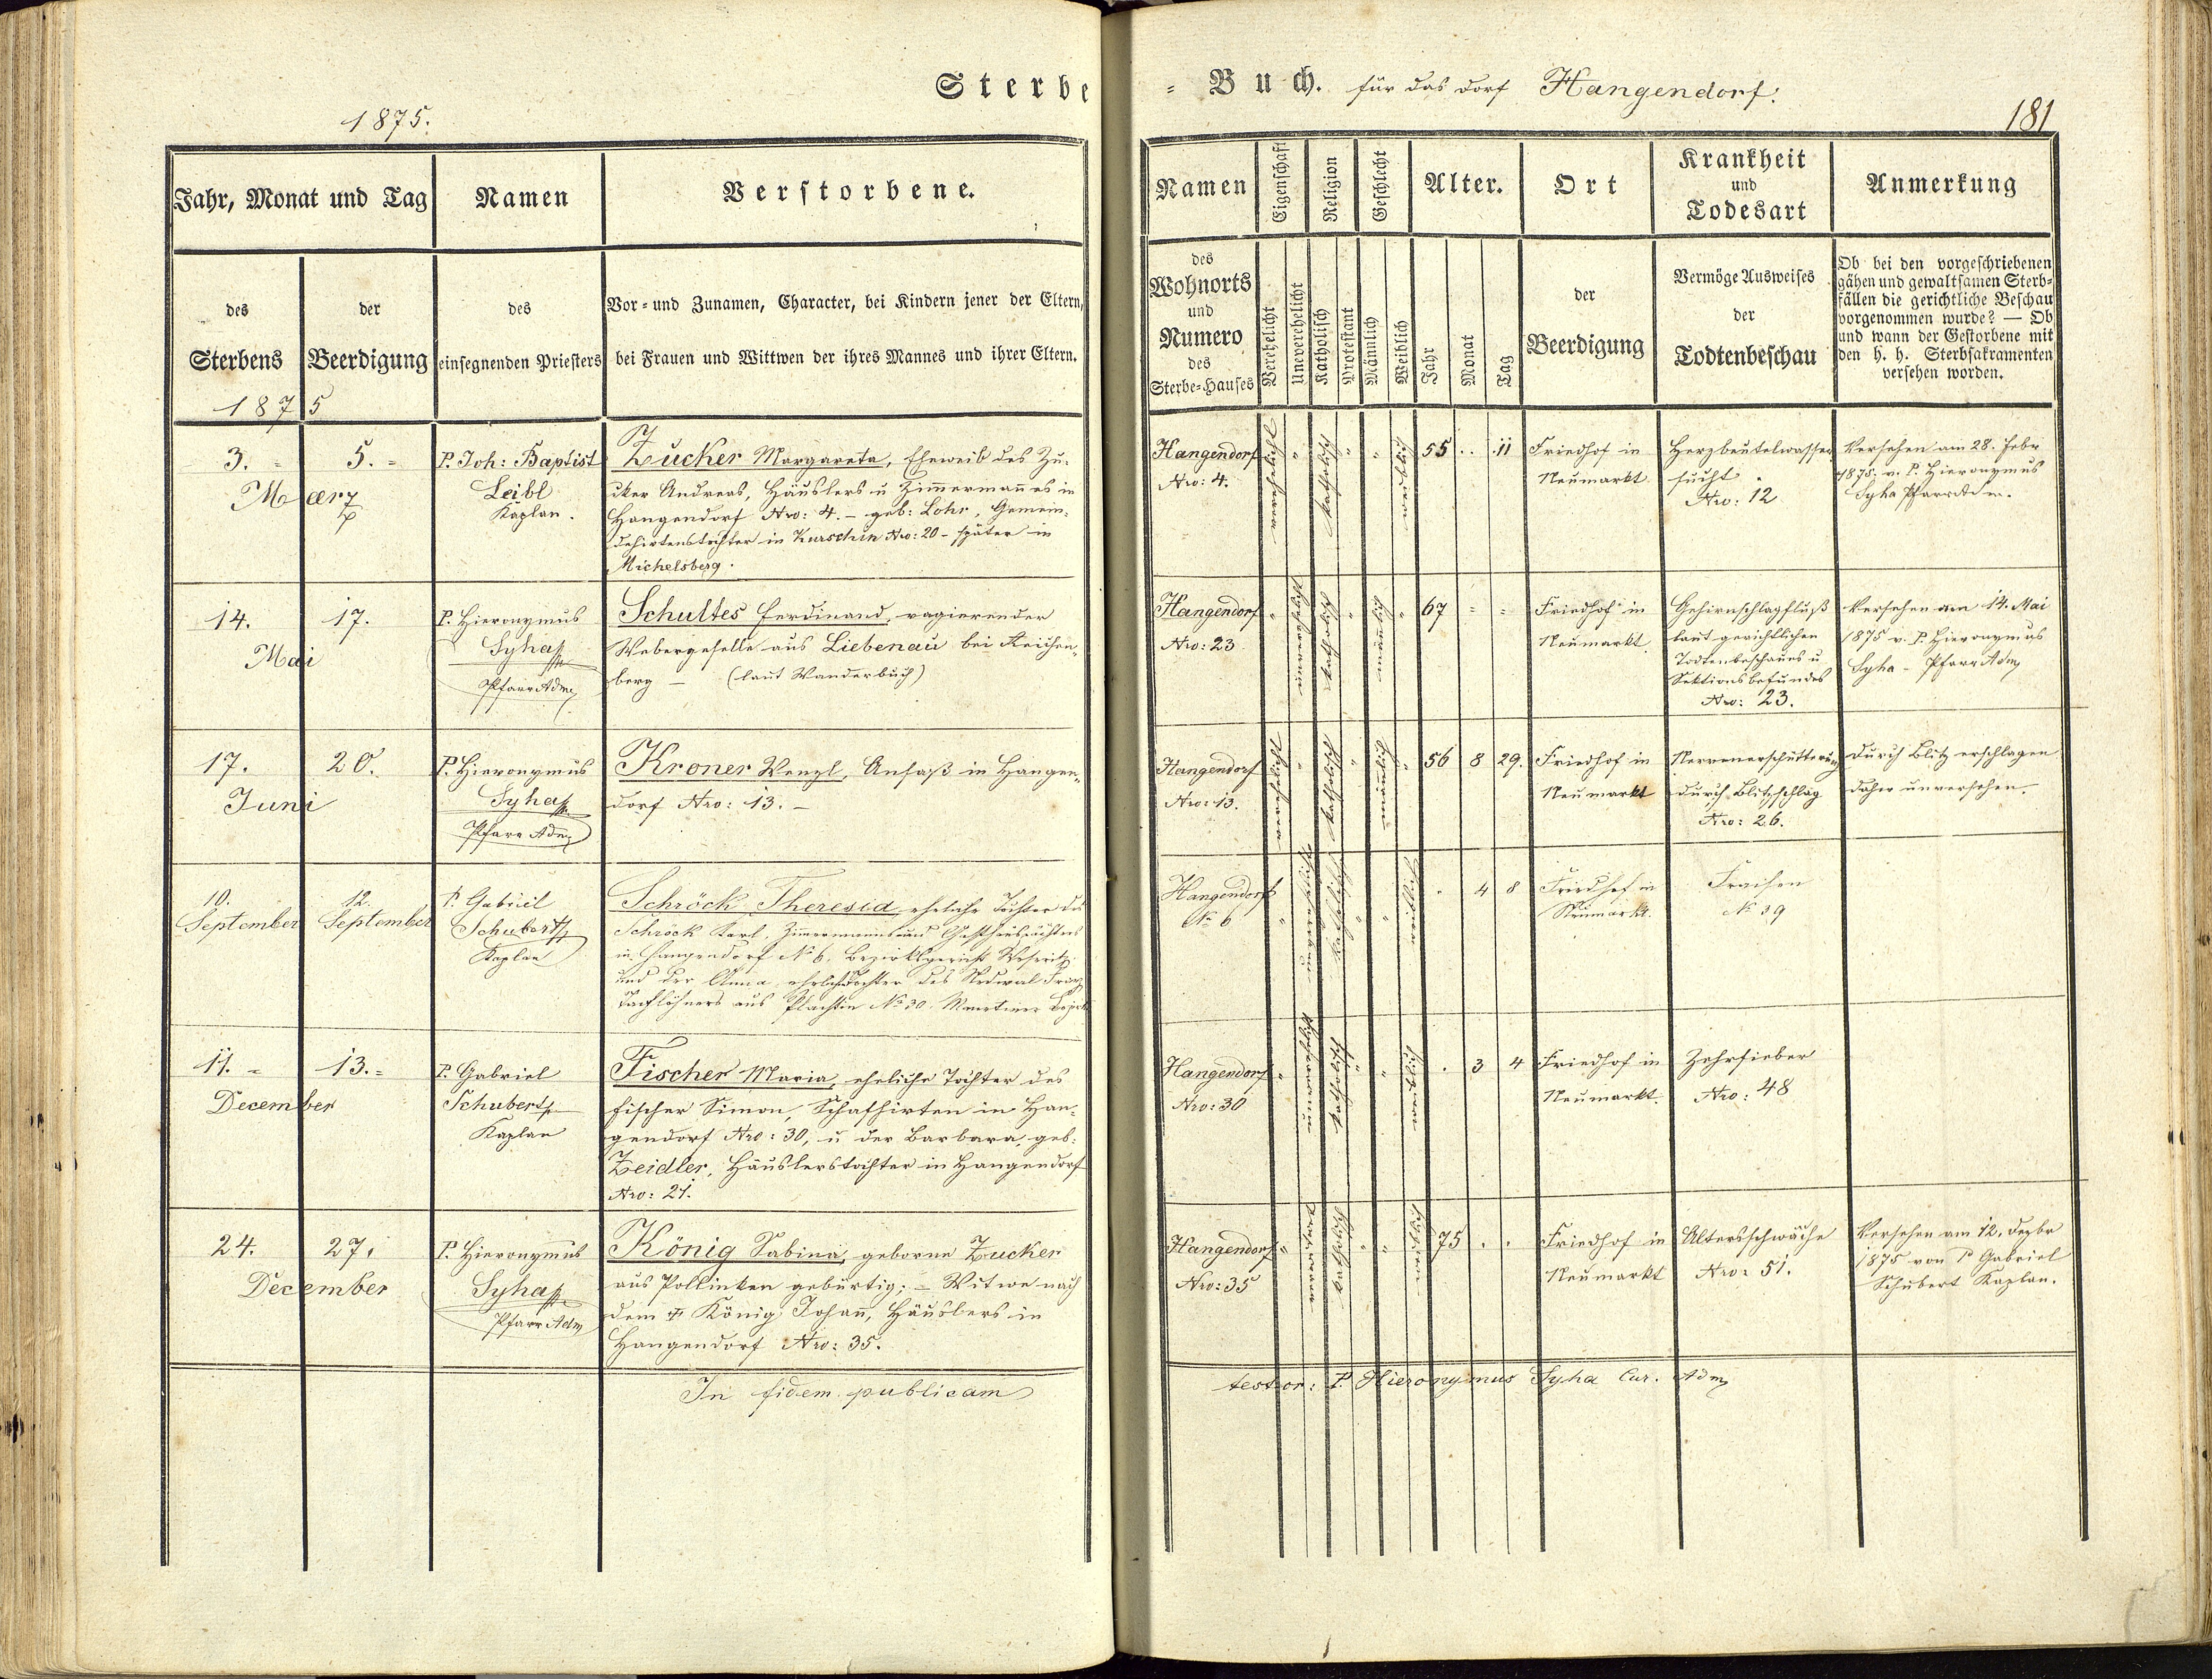 Sterbe = Buch. für das Dorf Hangendorf.
1875.
181
Jahr, Monat und Tag
Namen
Verstorbene.
des
Sterbens
der
Beerdigung
des
einsegnenden Priesters
Vor- und Zunamen, Character, bei Kindern jener der Eltern,
bei Frauen und Wittwen der ihres Mannes und ihrer Eltern.
1875
3. =
5. =
Maerz
P. Joh: Baptist
Leibl
Kaplan.
Zucker Margareta, Eheweib des Zu-
cker Andreas, Häuslers u Zimmermannes in
Hangendorf Nro: 4. – geb: Lohr, Gemein-
dehirtenstochter in Kurschin Nro: 20 – später in
Michelsberg.
14.
17.
Mai
P. Hieronymus
Syha
Pfarr Adm
Schultes Ferdinand, vagierender
Webergeselle aus Liebenau bei Reichen-
berg – (laut Wanderbuch)
17.
20.
Juni
P. Hieronymus
Syha
Pfarr Adm
Kroner Wenzl, Ansaß in Hangen-
dorf Nro: 13. –
10.
September
12.
September
P. Gabriel
Schubert
Kaplan
Schröck Theresia eheliche Tochter des
Schröck Karl, Zimmermanns und Gasthauspächters
in Hangendorf No 6, Bezirksgericht Weseritz
und der Anna, ehelich Tochter des
Taglöhners aus No 30.
11. =
13. =
December
P. Gabriel
Schubert
Kaplan
Fischer Maria, eheliche Tochter des
Fischer Simon, Schafhirten in Han-
gendorf Nro: 30, u der Barbara, geb:
Zeidler, Häuslerstochter in Hangendorf
Nro: 21.
24.
27.
December
P. Hieronymus
Syha
Pfarr Adm
König Sabina, geborne Zucker
aus Pollinken gebürtig; – Witwe nach
dem † König Johann, Häuslers in
Hangendorf Nro: 35.
In fidem publicam
Namen
Eigenschaft
Religion
Geschlecht
Alter.
Ort
Krankheit
und
Todesart
Anmerkung
des
Wohnorts
und
Numero
des
Sterbe-Hauses
Verehelicht
Unverehelicht
Katholisch
Protestant
Männlich
Weiblich
Jahr
Monat
Tag
der
Beerdigung
Vermöge Ausweises
der
Todtenbeschau
Ob bei den vorgeschriebenen
gähen und gewaltsamen Sterb-
fällen die gerichtliche Beschau
vorgenommen wurde? — Ob
und wann der Gestorbene mit
den h. h. Sterbsakramenten
versehen worden.
Hangendorf
Nro: 4.
verehelicht " katholisch " " weiblich
55 . . 11
Friedhof in
Neumarkt
Herzbeutelwasser
sucht.
Nro: 12
Versehen am 28. Febr
1875. v. P. Hieronymus
Syha Pfarr Adm.
Hangendorf
Nro: 23
" unverehelicht katholisch " männlich "
67 = =
Friedhof in
Neumarkt
Gehirnschlagfluß
laut gerichtlichen
Todtenbeschaues u
Sektionsbefundes
Nro: 23.
Versehen am 14. Mai
1875 v. P. Hieronymus
Syha – Pfarr Adm
Hangendorf
Nro: 13.
verehelicht " katholisch " männlich "
56 8 29.
Friedhof in
Neumarkt
Nervenerschütterung
durch Blitzschlag
Nro: 26.
Durch Blitz erschlagen
daher unversehen.
Hangendorf
No 6
" unverehelicht katholisch " " weiblich
. 4 8
Friedhof in
Neumarkt.
Fraisen
No 39
Hangendorf
Nro: 30
" unverehelicht katholisch " " weiblich
. 3 4
Friedhof in
Neumarkt.
Zehrfieber
Nro: 48
Hangendorf
Nro: 35
" verwitwet katholisch " " weiblich
75 . .
Friedhof in
Neumarkt
Altersschwäche
Nro: 51.
Versehen am 12. Dezbr
1875 von P Gabriel
Schubert Kaplan.
testor: P. Hieronymus Syha Cur. Adm